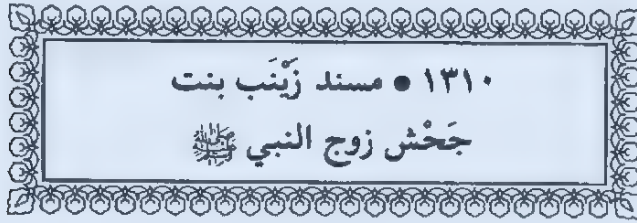 ١٣١٠ • مسند زَيْنَب بنت
جَحْش زوج النبي ﷺ